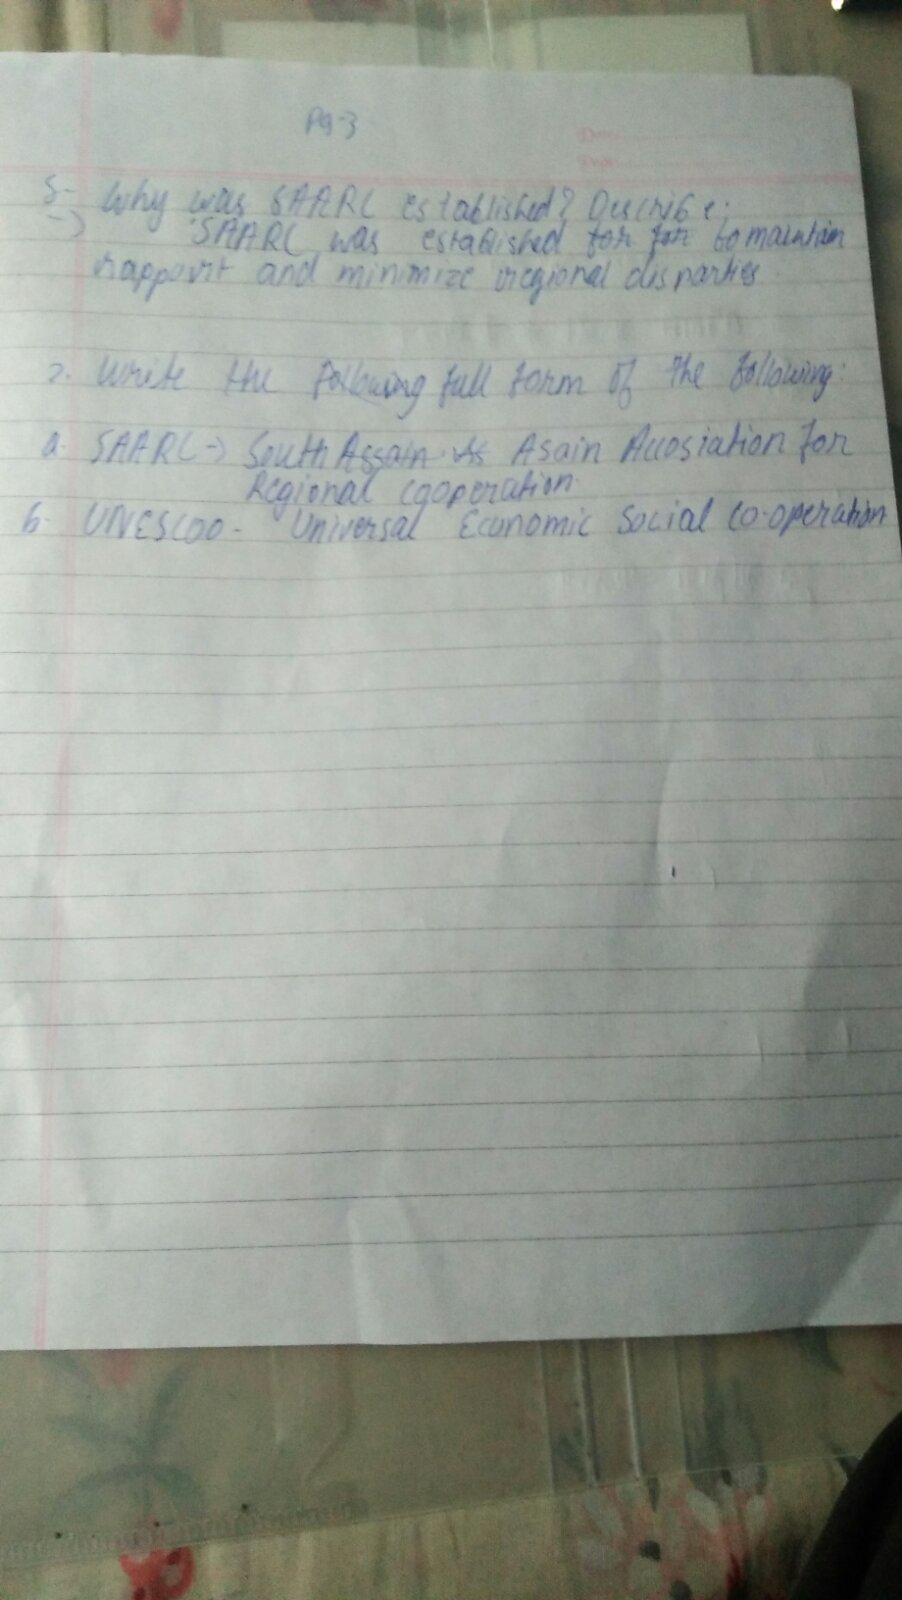 Pg-3
5- Why was SAARC established? Describe:
-) SAARC was established for for to maintain
rapport and minimize regional disparties.
2. Write the following full form of the following:
a. SAARC-> South Assain As Asain Accosiation for
Regional cooperation.
b- UNESCOO- Universal Economic Social co-operation